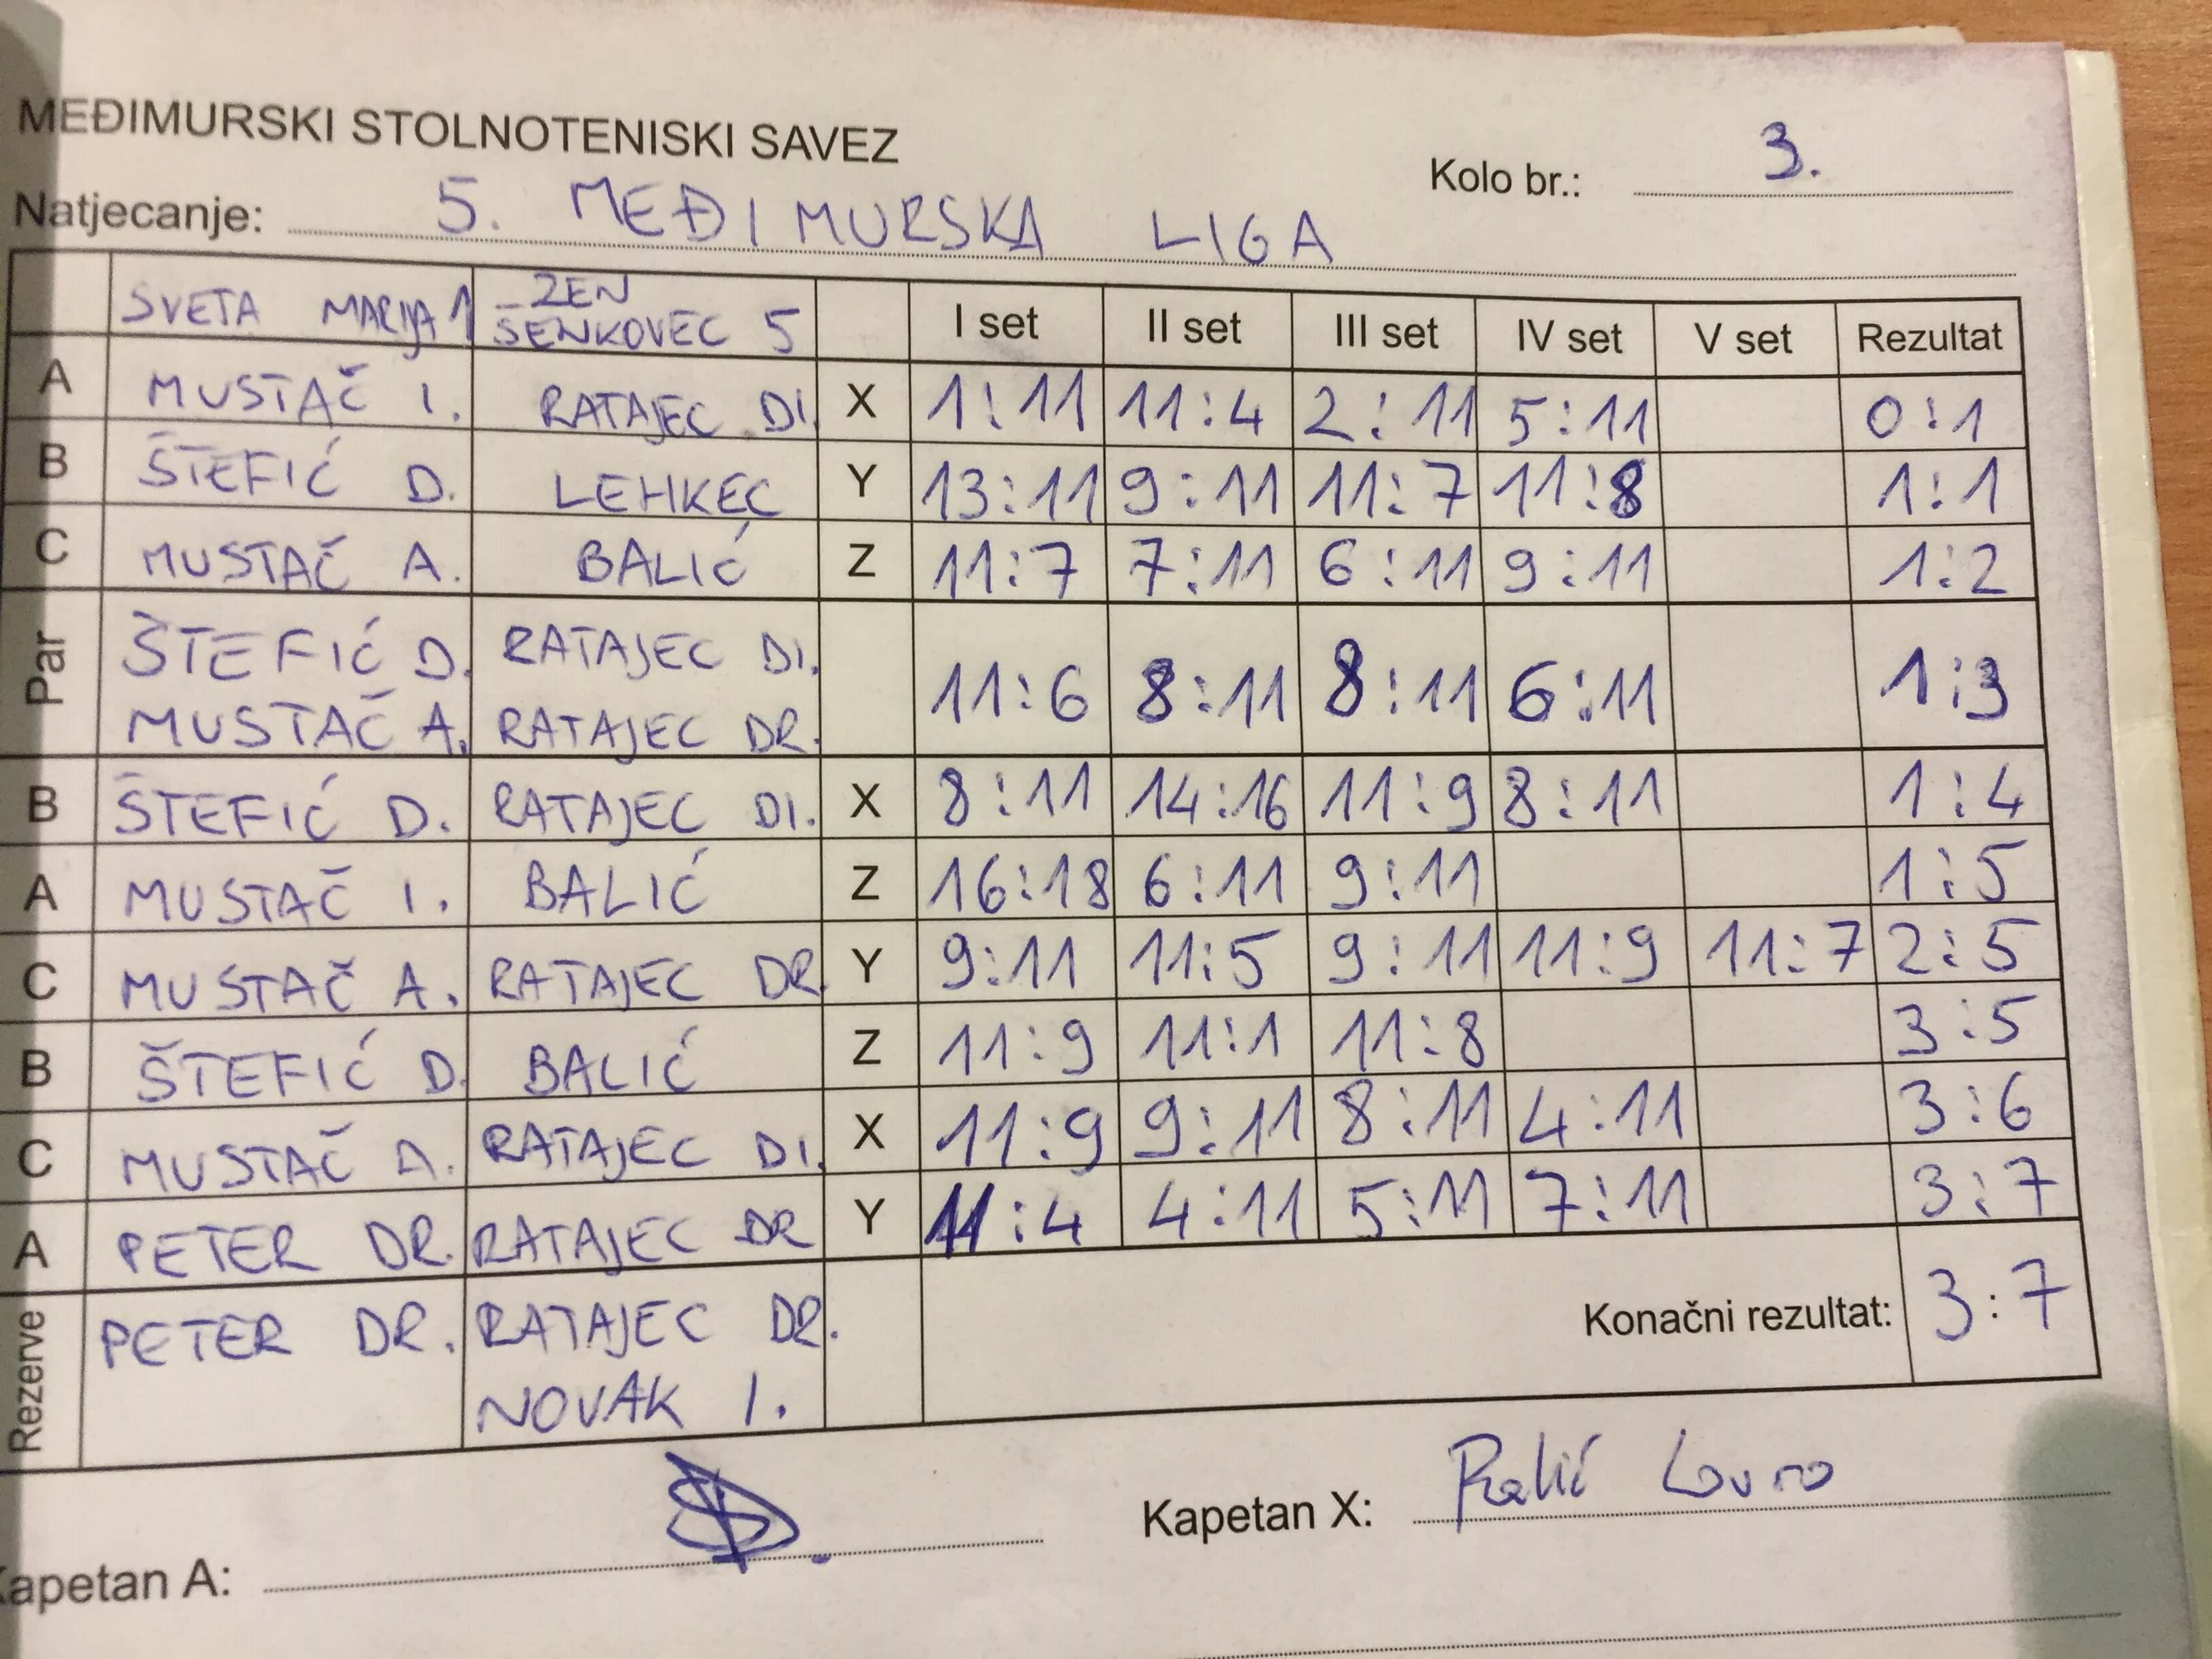 MEĐIMURSKI STOLNOTENISKI SAVEZ
Kolo br.: 3.
Natjecanje: 5. MEĐIMURSKA LIGA
SVETA MARIJA 1 ZEN ŠENKOVEC 5 I set II set III set IV set V set Rezultat
A MUSTAČ I. RATAJEC DI. X 1:11 11:4 2:11 5:11 0:1
B ŠTEFIĆ D. LEHKEC Y 13:11 9:11 11:7 11:8 1:1
C MUSTAČ A. BALIĆ Z 11:7 7:11 6:11 9:11 1:2
Par ŠTEFIĆ D. RATAJEC DI. 11:6 8:11 8:11 6:11 1:3
MUSTAČ A. RATAJEC DR.
B ŠTEFIĆ D. RATAJEC DI. X 8:11 14:16 11:9 8:11 1:4
A MUSTAČ I. BALIĆ Z 16:18 6:11 9:11 1:5
C MUSTAČ A. RATAJEC DR. Y 9:11 11:5 9:11 11:9 11:7 2:5
B ŠTEFIĆ D. BALIĆ Z 11:9 11:1 11:8 3:5
C MUSTAČ A. RATAJEC DI. X 11:9 9:11 8:11 4:11 3:6
A PETER DR. RATAJEC DR Y 11:4 4:11 5:11 7:11 3:7
Rezerve PETER DR. RATAJEC DR. Konačni rezultat: 3:7
NOVAK I.
Kapetan X: Balić Lovro
Kapetan A: